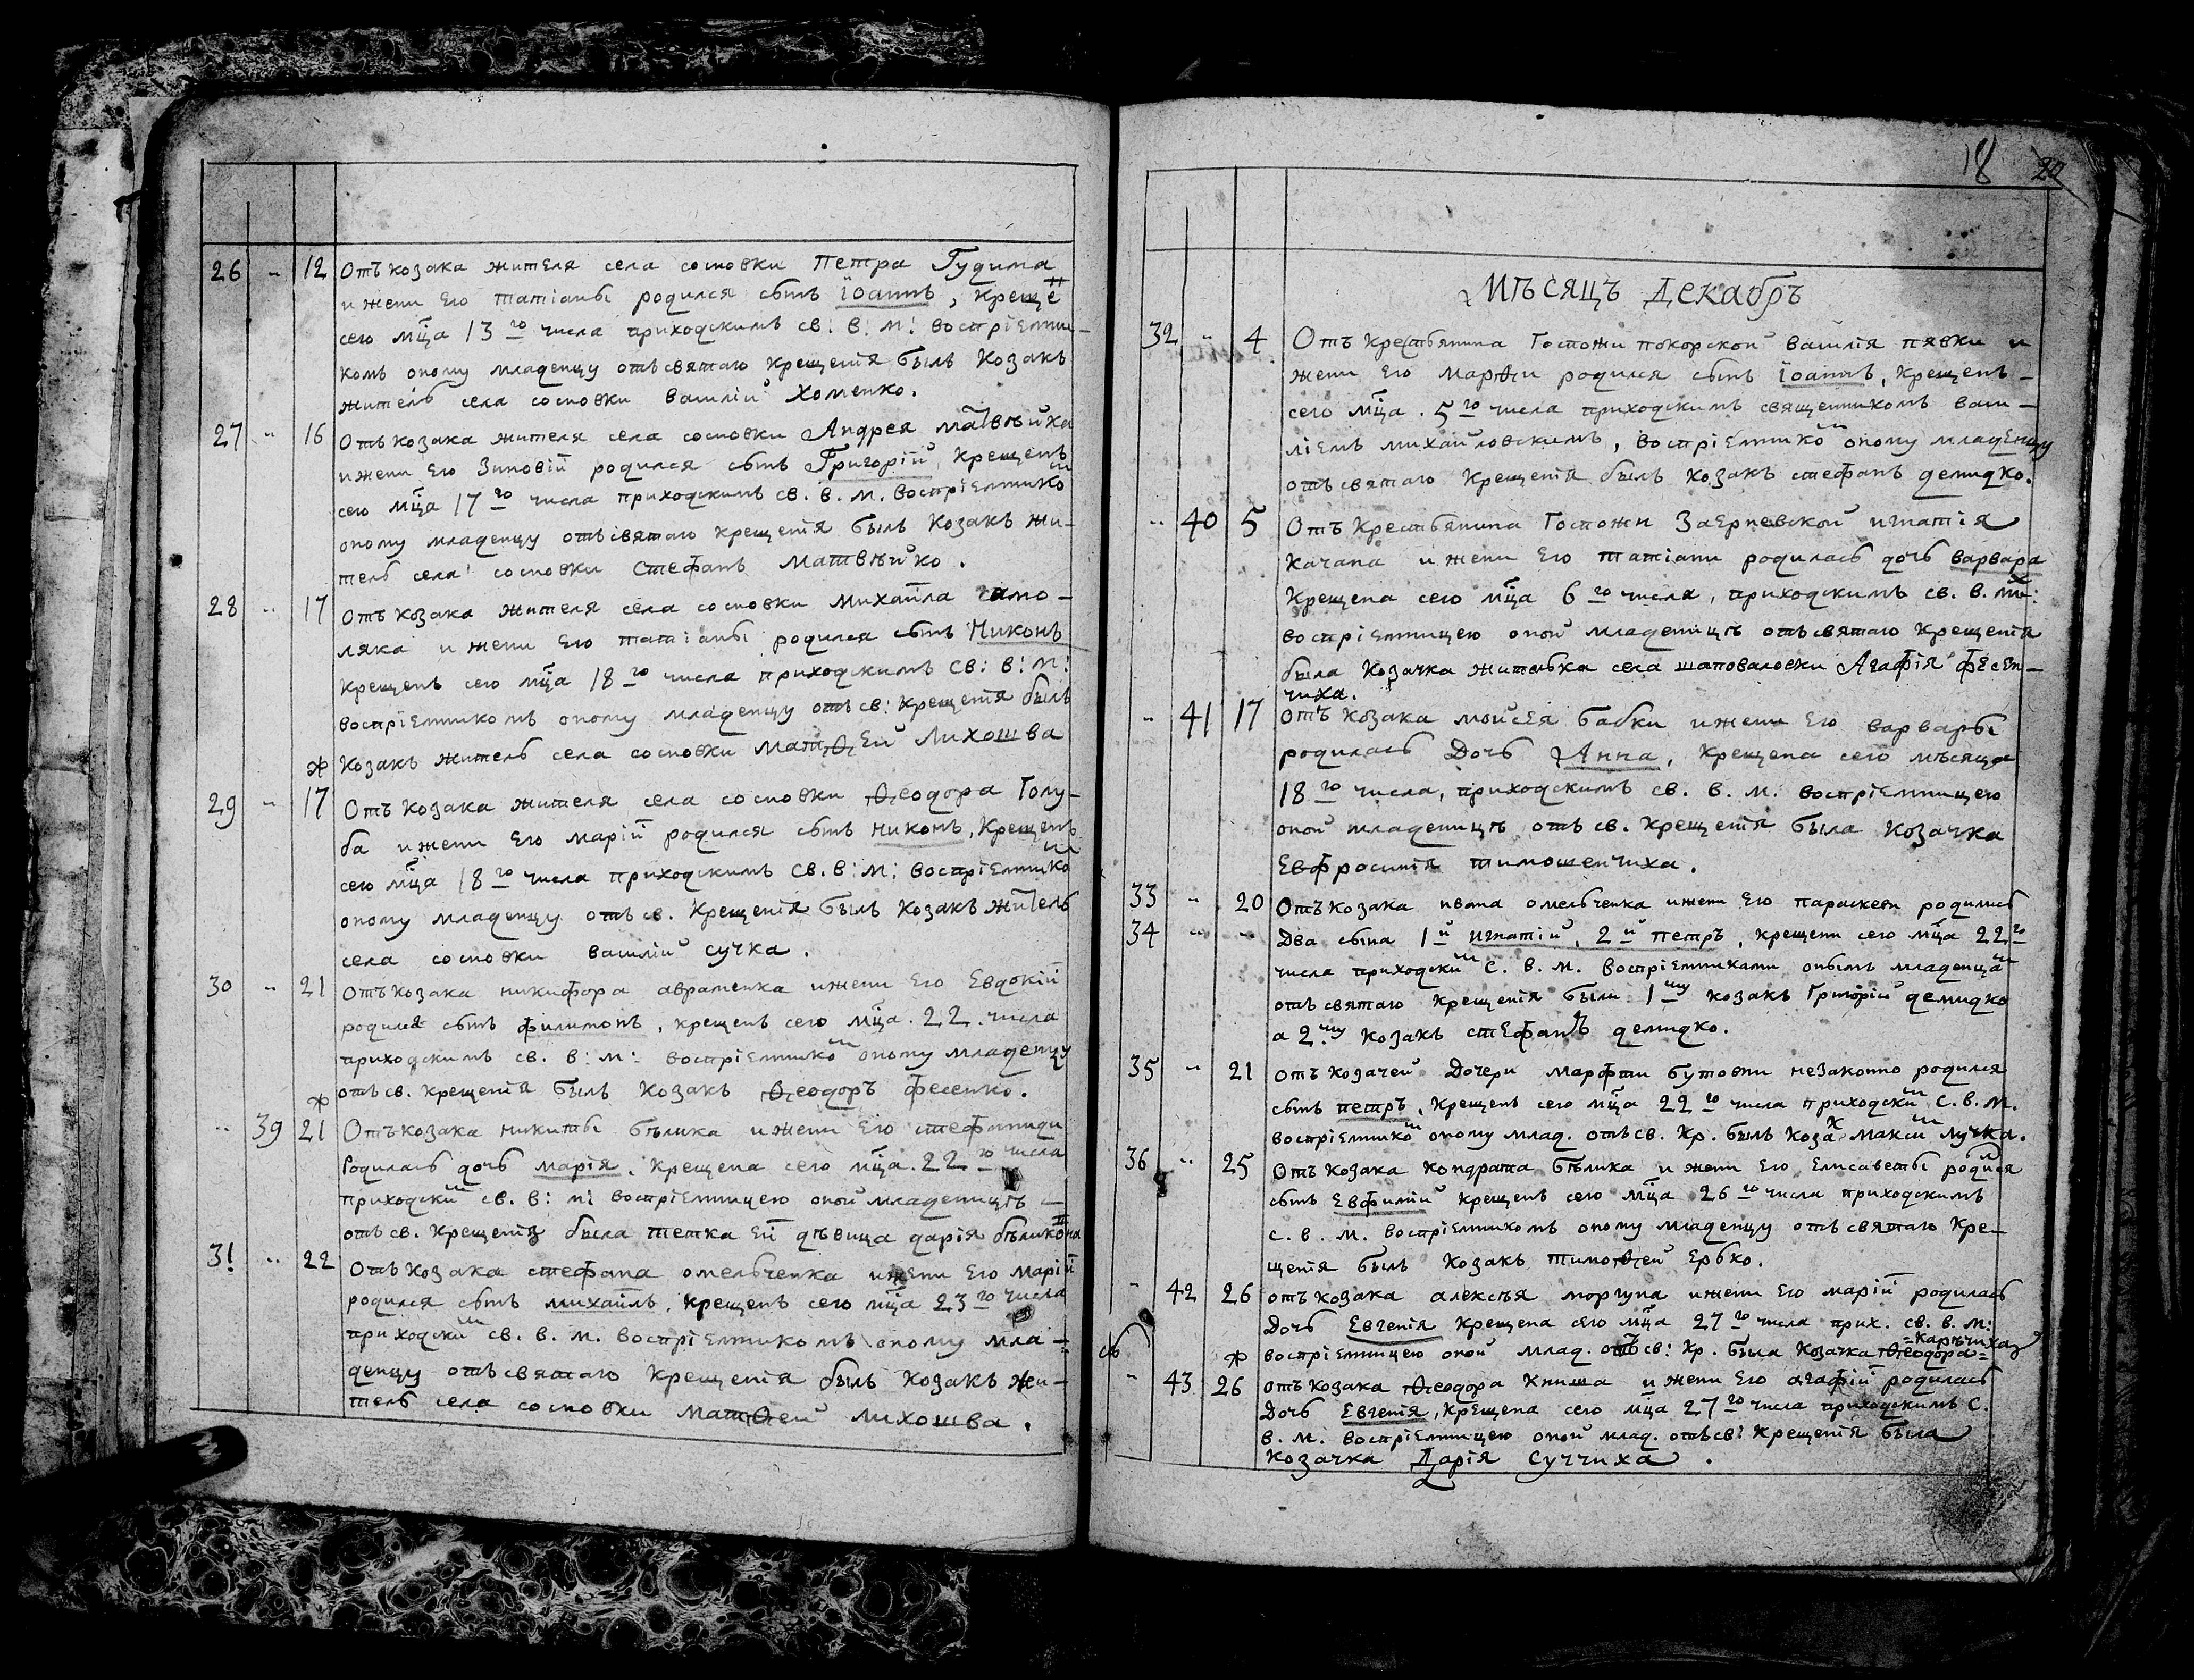 26 " 12 Отъ козака жителя села сосновки Петра Гудима
и жени его татіаны родился сынъ Іоаннъ, крещенъ
сего мца 13го числа приходскимъ св: в: м: воспріемни-
комъ оному младенцу отъ святаго крещенія былъ козакъ
житель села сосновки василій Хоменко.
27 " 16 Отъ козака жителя села сосновки Андрея матвѣйка
и жени его Зиновій родился сынъ Григорій, крещенъ
сего мца 17го числа приходскимъ св. в. м. воспріемникомъ
оному младенцу отъ святаго крещенія былъ козакъ жи-
тель села сосновки стефанъ матвѣйко.
28 " 17 Отъ козака жителя села сосновки михаила само-
ляка и жени его татіаны родился сынъ Никонъ
крещенъ сего мца 18го числа приходскимъ св: в: м:
воспріемникомъ оному младенцу отъ св: крещенія былъ
козакъ житель села сосновки матѳей лихошва
29 " 17 Отъ козака жителя села сосновки ѳеодора Голу-
ба и жени его марій родился сынъ никонъ, крещенъ
сего мца 18го числа приходскимъ св. в: м: воспріемникомъ
оному младенцу отъ св. крещенія былъ козакъ житель
села сосновки василій сучка.
30 " 21 Отъ козака никифора авраменка и жени его Евдокій
родился сынъ филимонъ, крещенъ сего мца. 22. числа
приходскимъ св. в: м: воспріемникомъ оному младенцу
отъ св. крещенія былъ козакъ ѳеодоръ фесенко.
" 39 21 Отъ козака никиты бѣлика и жени его стефаниди
родилась дочь марія. крещена сего мца. 22го числа
приходским св. в: м: воспріемницею оной младеницѣ —
отъ св. крещенія была тетка ей дѣвица дарія бѣликовна
31 " 22 Отъ козака стефана омельченка и жени его марій
родился сынъ михаилъ. крещенъ сего мца 23го числа
приходским св. в. м. воспріемникомъ оному мла-
денцу отъ святаго крещенія былъ козакъ жи-
тель села сосновки матѳей лихошва.
18 20
Мѣсяцъ Декабрь
32 " 4 Отъ крестьянина Госпожи покорской василія пявки и
жени его марѳи родился сынъ Іоаннъ, крещенъ —
сего мца. 5го числа приходскимъ священникомъ васи-
ліемъ михайловскимъ, воспріемником оному младенцу
отъ святаго крещенія былъ козакъ стефанъ демидко.
" 40 5 Отъ крестьянина Госпожи Заерневской игнатія
качана и жени его татіани родилась дочь варвара
крещена сего мца 6го числа, приходскимъ св. в. ми:
воспріемницею оной младеницѣ отъ святаго крещенія
была козачка жителька села шаповаловки Агафія фесен-
чиха.
" 41 17 Отъ козака мойсея бабки и жени его варвары
родилась дочь Анна, крещена сего мѣсяца
18го числа, приходскимъ св. в. м: воспріемницею
оной младеницѣ отъ св. крещенія была козачка
Евфросинія тимошенчиха.
33 " 20 Отъ козака ивана омельченка и жени его параскеви родились
34 " " Два сына 1й игнатій, 2й петръ, крещени сего мца 22го
числа приходским с. в. м. воспріемниками онымъ младенцам
отъ святаго крещенія были 1му козакъ Григорій демидко
а 2му козакъ стефанъ демидко.
35 " 21 Отъ козачей дочери марфти бутовни незаконно родился
сынъ петръ, крещенъ сего мца 22го числа приходским с. в. м.
воспріемником оному млад. отъ св. кр. былъ козак максим лучка.
36 " 25 Отъ козака кондрата бѣлика и жени его Елисаветы родился
сынъ Евфимій крещенъ сего мца 26го числа приходскимъ
с. в. м. воспріемникомъ оному младенцу отъ святаго кре-
щенія былъ козакъ тимоѳей Ербко.
" 42 26 Отъ козака алексѣя моргуна и жени его марій родилась
Дочь Евгенія крещена сего мца 27го числа прих. св. в. м:
воспріемницею оной млад. отъ св: кр. была козачка ѳеодора = каръчиха
" 43 26 Отъ козака ѳеодора книша и жени его агафій родилась
Дочь Евгенія, крещена сего мца 27го числа приходскимъ с.
в. м. воспріемницею оной млад. отъ св: крещенія была
козачка Дарія Суччиха.